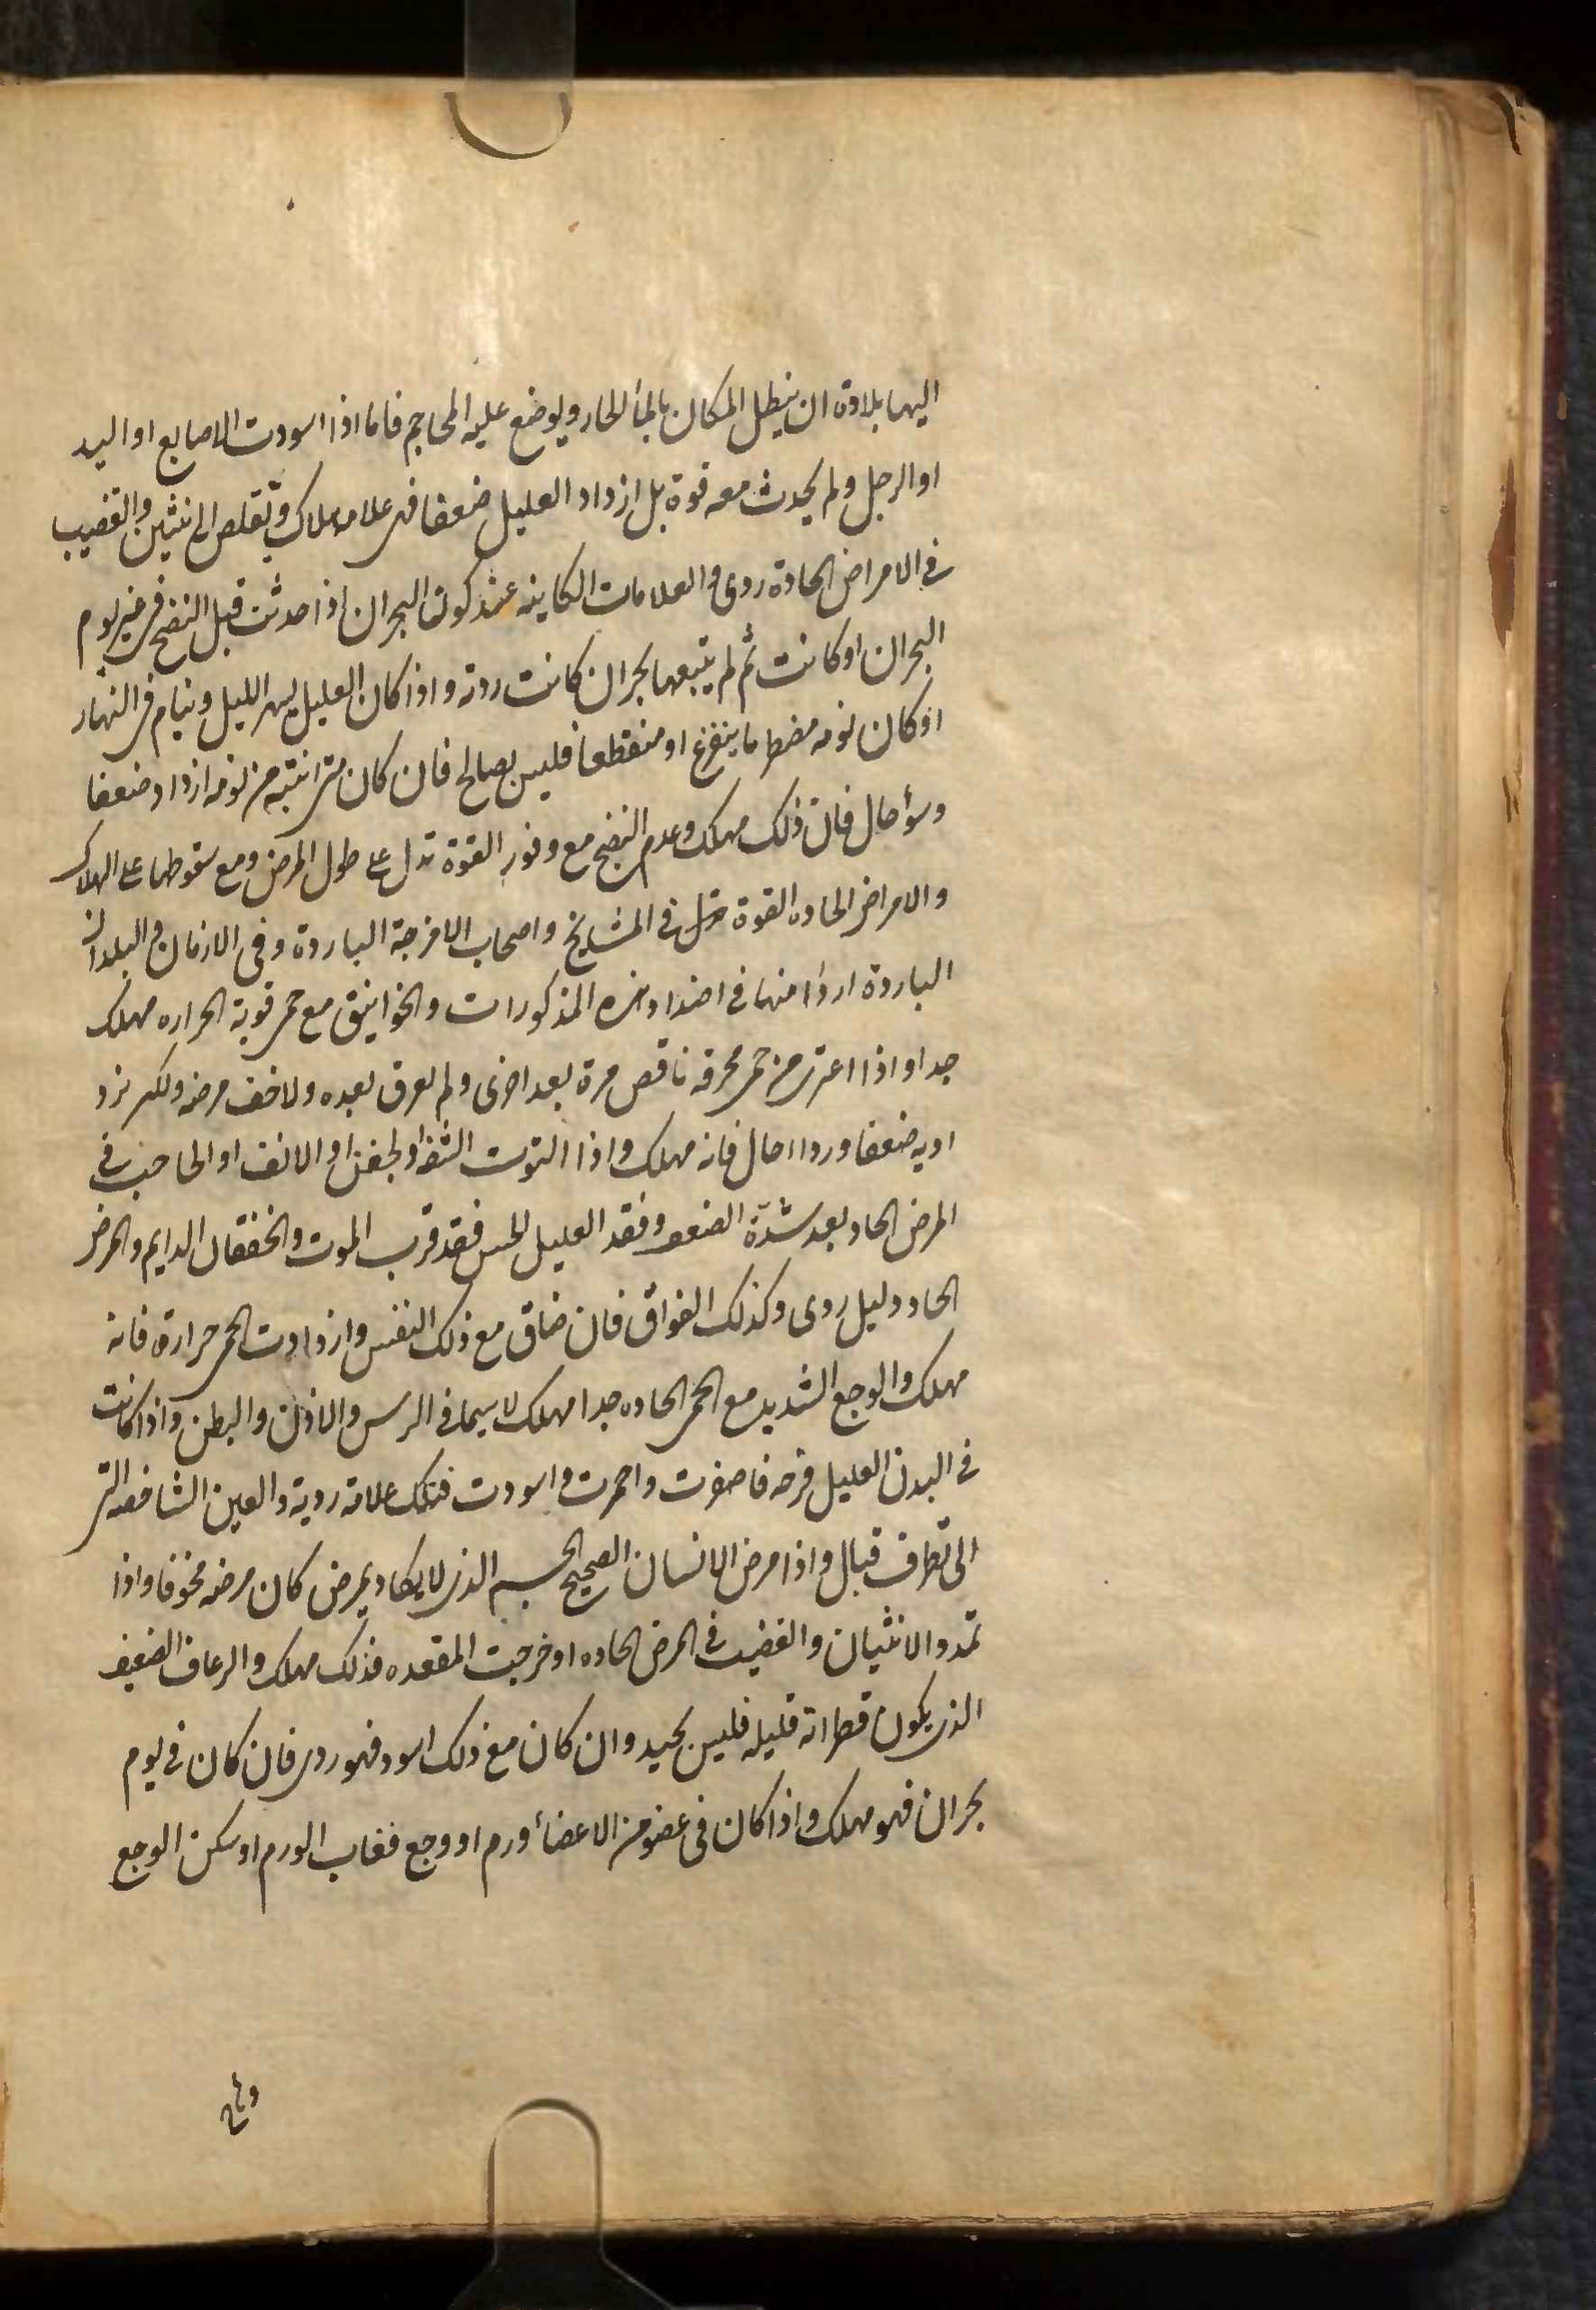 اليها بلادة ان ينطل المكان بالماٴ الحار ويوضع عليه المحاجم فاما اذا اسودت الاصابع او اليد
او الرجل ولم يحدث معه قوة بل ازداد العليل ضعفا فهى علامه هلاك وتقلص الانثيين والقضيب
فى الامراض الحادة ردى والعلامات الكاينه عند كون البحران اذا حدثت قبل النضج فى غير يوم
البحران او كانت ثم لم يتبعها بحران كانت ردية واذا كان العليل يسهر الليل وينام فى النهار
او كان نومه مضطربا بتفزع او منقطعا فليس بصالح فان كان متى انتبه من نومه ازداد ضعفا
وسوٴ حال فان ذلك مهلك وعدم النضج مع وفور القوة تدل على طول المرض ومع سقوطها على الهلاك
والامراض الحاده القوة فى المشايخ واصحاب الامزجة الباردة وفى الازمان والبلدان
الباردة اردا منها فى اضداد هذه المذكورات والخوانيق مع حمى قوية الحراره مهلك
جدا واذا اعترى من حمى محرقه نافض مرة بعد اخرى ولم يعرق بعده ولا خف مرضه ولكن يزد
اد به ضعفا وردا احال فانه مهلك واذا التوت الشفه او الجفن او الانف او الحاجب فى
المرض الحاد بعد شدّة الضعف وفقد العليل الحس فقد قرب الموت والخفقان الدايم والمرض
الحاد دليل ردى وكذلك الفواق فان ضاق مع ذلك النفس وازدادت الحمى حرارة فانه
مهلك والوجع الشديد مع الحمى الحاده جدا مهلك لا سيما فى الرس والاذن والبطن واذا كانت
فى البدن العليل قرحه فاصفرت واحمرت واسودت فتلك علامة ردية والعين الشاخصه التى
لا تطرف قتال واذا مرض الانسان الصحيح الجسم الذى لا يكاد يمرض كان مرضه مخوفا واذا
تمدد الانثيان والقضيب فى المرض الحاده او خرجت المقعده فذلك مهلك والرعاف الضعيف
الذى يكون قطراته قليله فليس بجيد وان كان مع ذلك اسود فهو ردى فان كان فى يوم
بحران فهو مهلك واذا كان فى عضو من الاعضاٴ ورم او وجع فغاب الورم او سكن الوجع